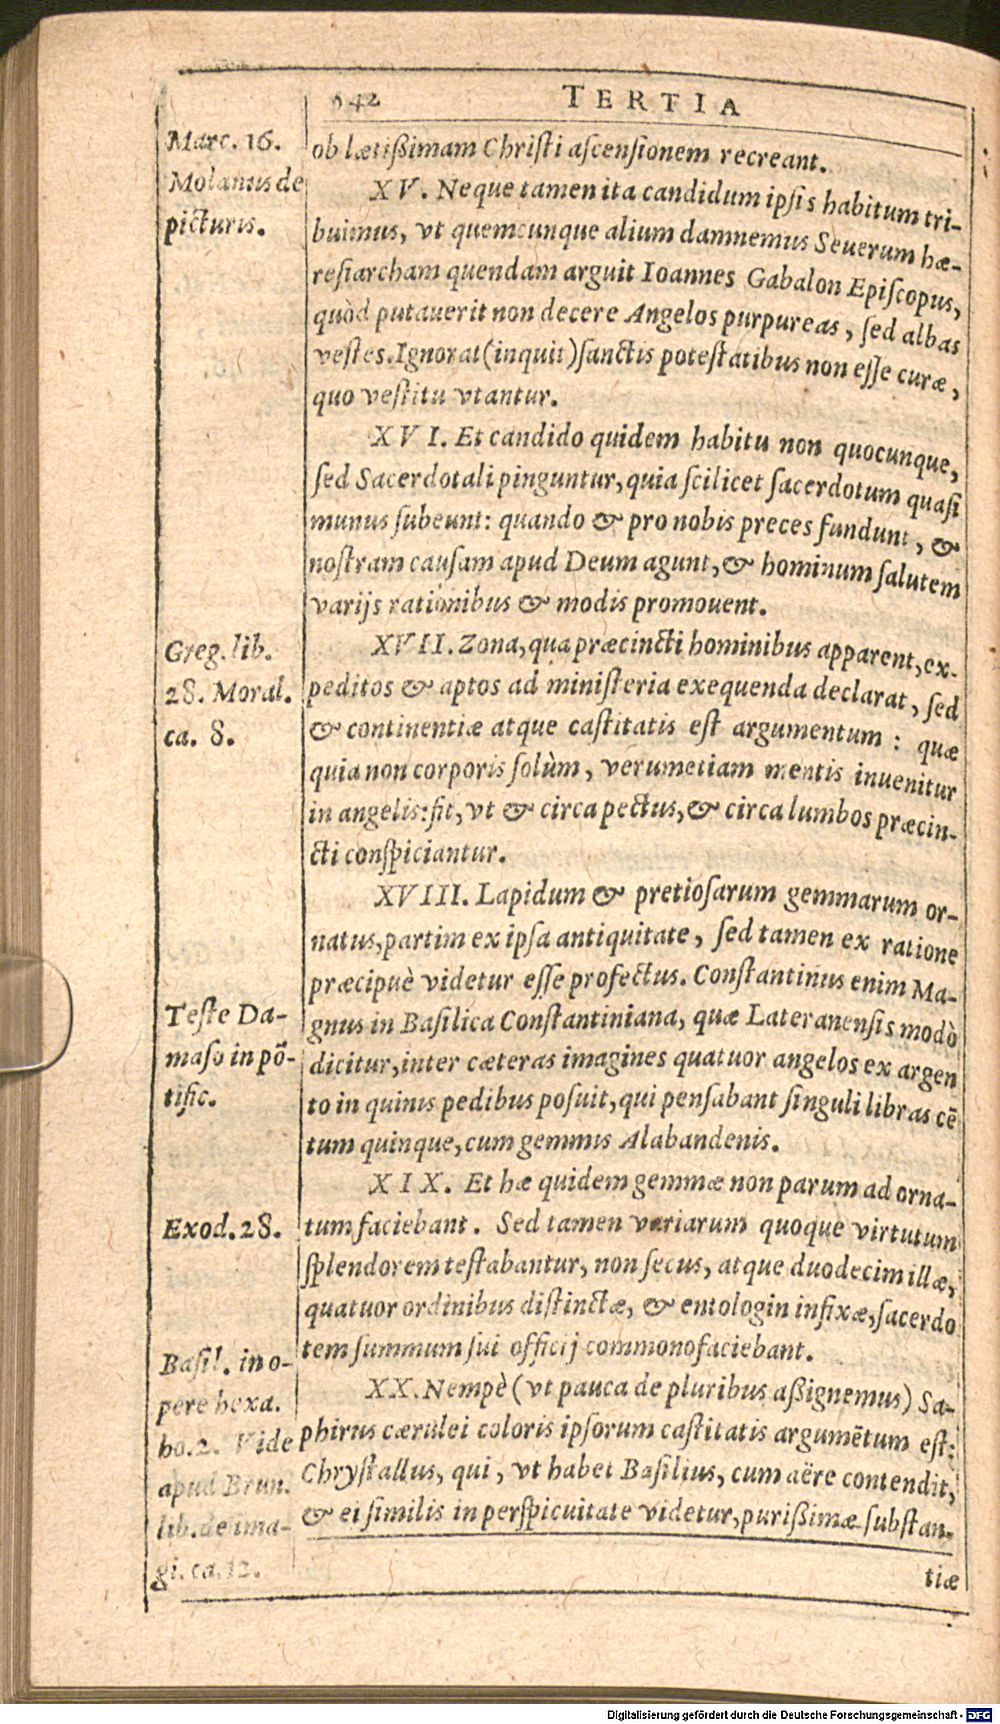 842 TERTIA
Marc. 16.
Molanus de
picturis.
ob lætißimam Chriſti aſcenſionem recreant.
XV. Neque tamen ita candidum ipſis habitum tri-
buimus, vt quemcunque alium damnemus Seuerum hæ-
reſiarcham quendam arguit Ioannes Gabalon Epiſcopus,
quòd putauerit non decere Angelos purpureas, ſed albas
veſtes. Ignorat (inquit) ſanctis poteſtatibus non eſſe curæ,
quo veſtitu vtantur.
XVI. Et candido quidem habitu non quocunque,
ſed Sacerdotali pinguntur, quia ſcilicet ſacerdotum quaſi
munus ſubeunt: quando & pro nobis preces fundunt, &
noſtram cauſam apud Deum agunt, & hominum ſalutem
varijs rationibus & modis promouent.
Greg. lib.
28. Moral.
ca. 8.
XVII. Zona, qua præcincti hominibus apparent, ex-
peditos & aptos ad miniſteria exequenda declarat, ſed
& continentiæ atque caſtitatis eſt argumentum: quæ
quia non corporis ſolùm, verumetiam mentis inuenitur
in angelis: fit, vt & circa pectus, & circa lumbos præcin-
cti conſpiciantur.
XVIII. Lapidum & pretioſarum gemmarum or-
natus, partim ex ipſa antiquitate, ſed tamen ex ratione
præcipuè videtur eſſe profectus. Conſtantinus enim Ma-
Teſte Da-
maſo in põ-
tific.
gnus in Baſilica Conſtantiniana, quæ Lateranenſis modò
dicitur, inter cæteras imagines quatuor angelos ex argen
to in quinis pedibus poſuit, qui penſabant ſinguli libras cē
tum quinque, cum gemmis Alabandenis.
XIX. Et hæ quidem gemmæ non parum ad orna-
Exod. 28.
tum faciebant. Sed tamen variarum quoque virtutum
ſplendorem teſtabantur, non ſecus, atque duodecim illæ,
quatuor ordinibus diſtinctæ, & entologin infixæ, ſacerdo
tem ſummum ſui officij commonofaciebant.
Baſil. in o-
pere hexa.
ho. 2. Vide
apud Brun.
lib. de ima-
gi. ca. 12.
XX. Nempè (vt pauca de pluribus aßignemus) Sa-
phirus cærulei coloris ipſorum caſtitatis argumētum eſt:
Chryſtallus, qui, vt habet Baſilius, cum aëre contendit,
& ei ſimilis in perſpicuitate videtur, purißimæ ſubſtan-
tiæ
Digitalisierung gefördert durch die Deutsche Forschungsgemeinschaft - DFG